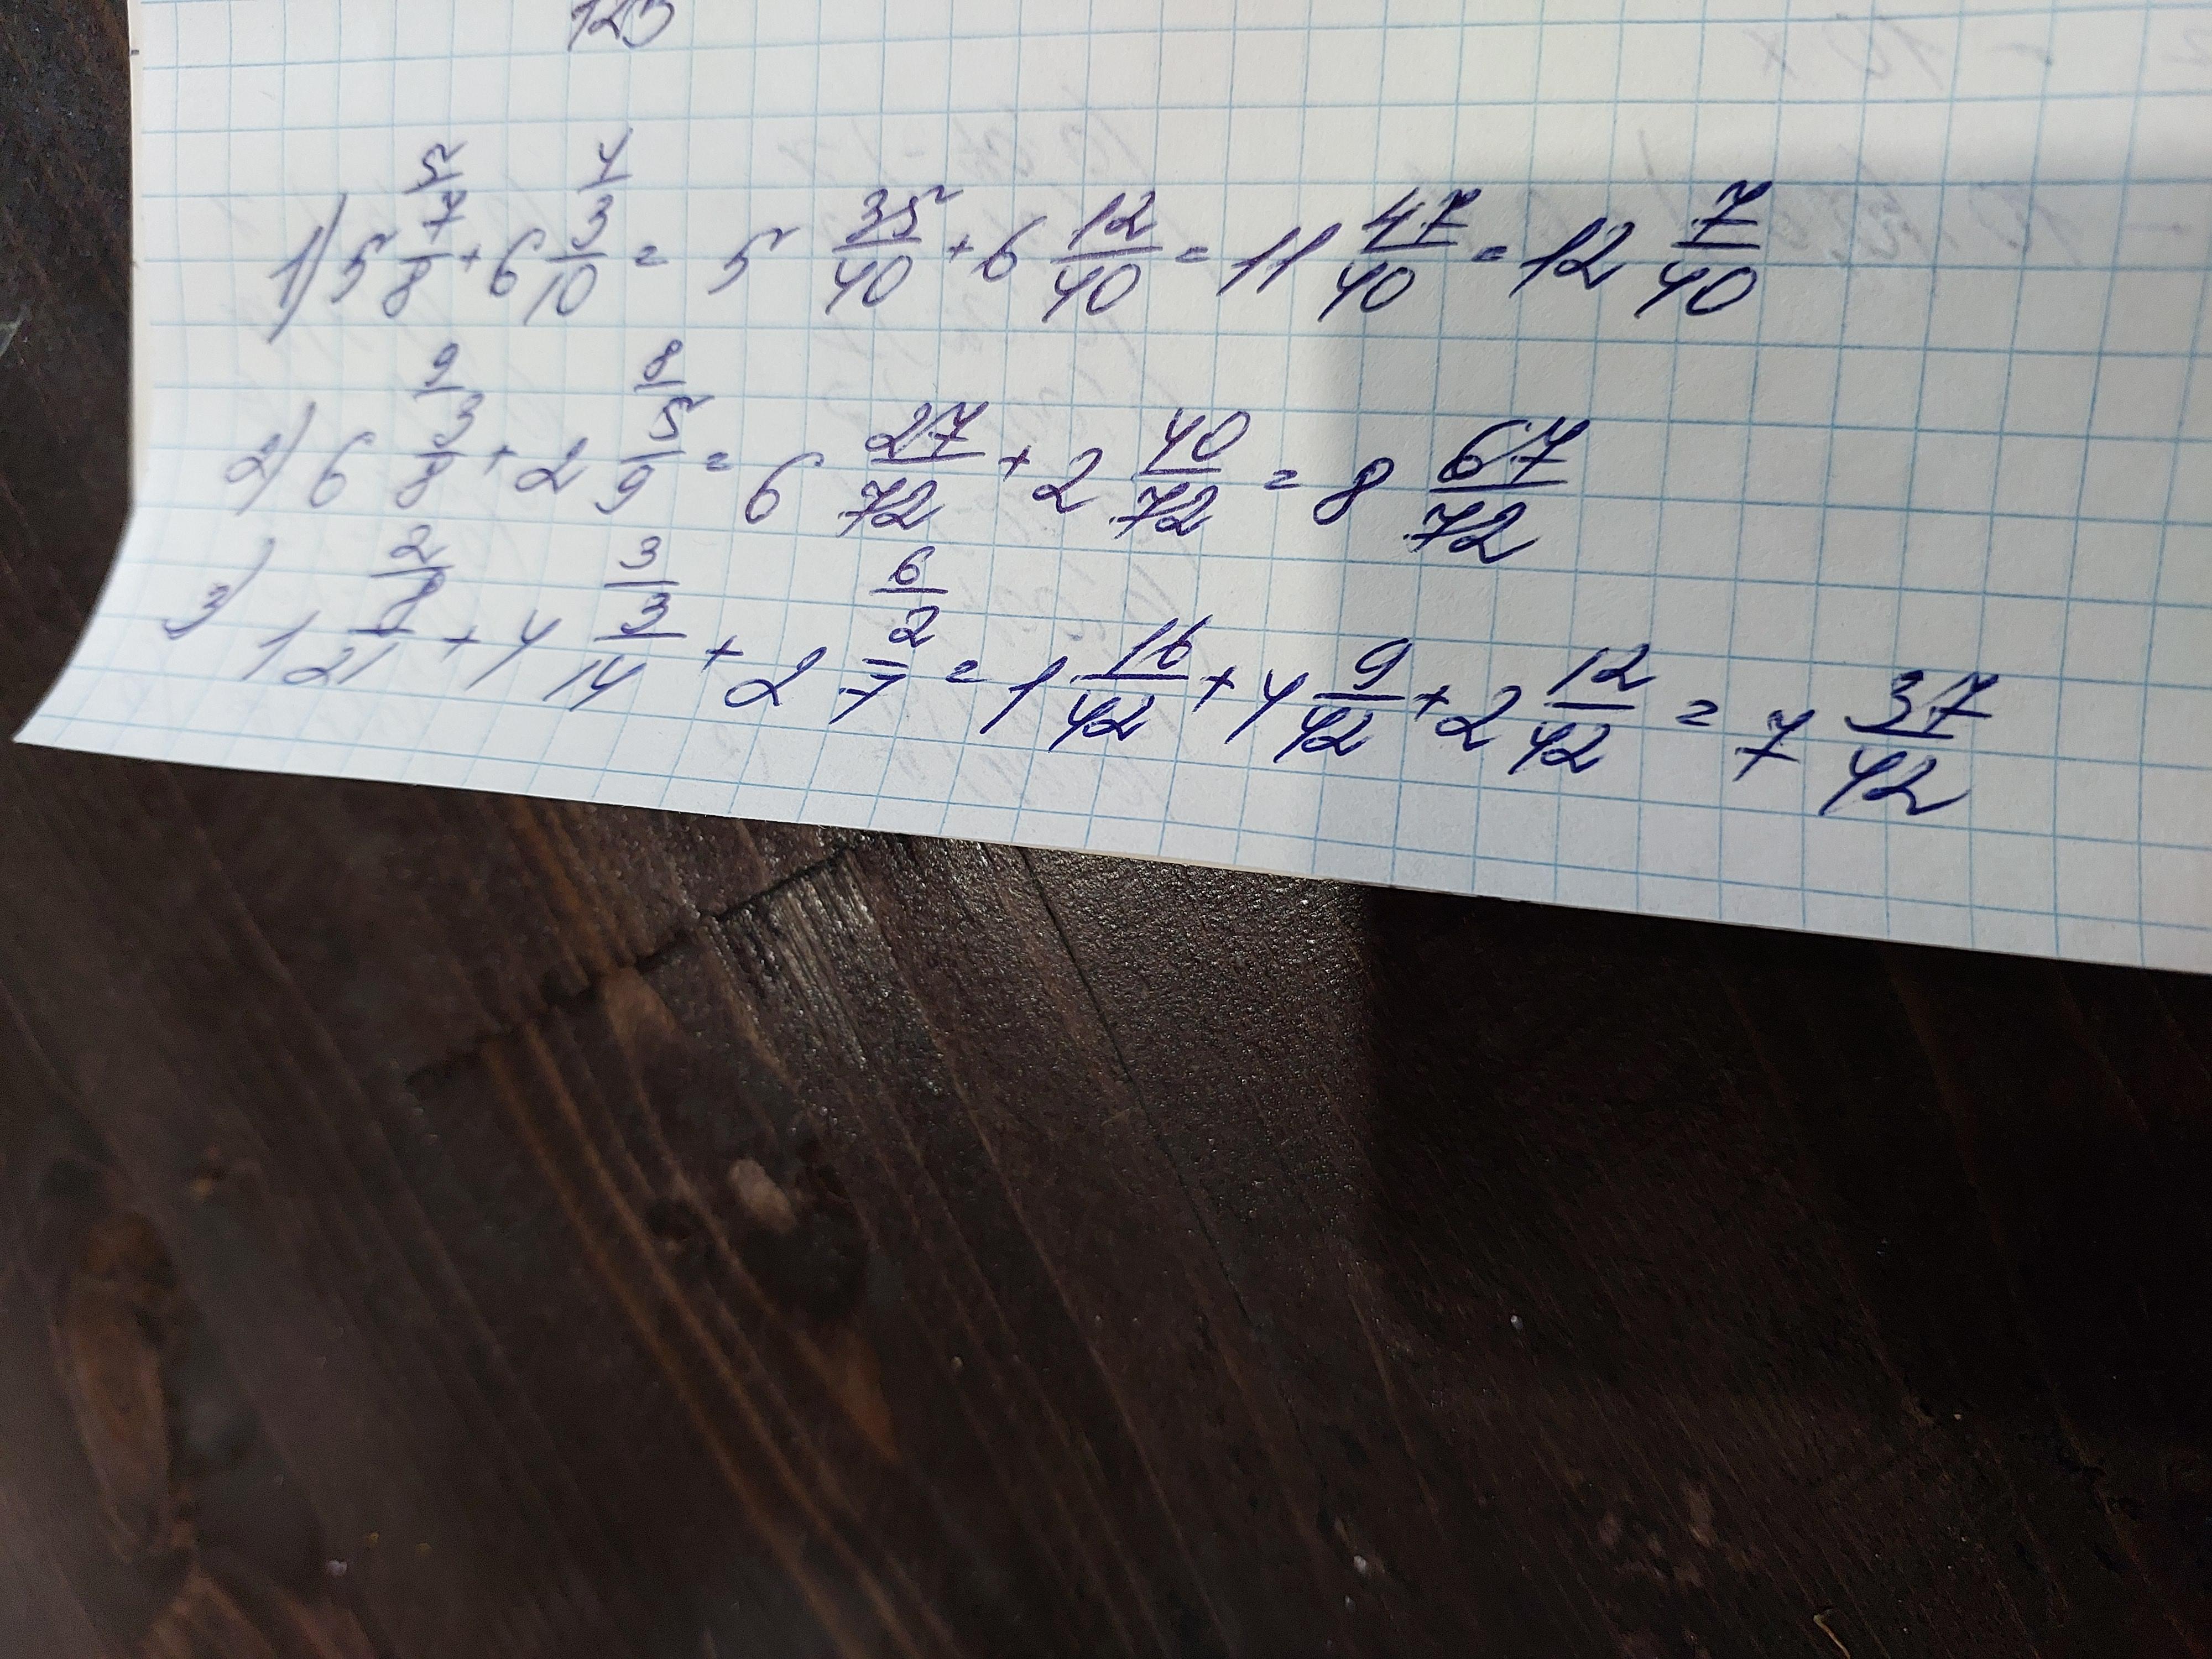 123
1) 5 5/ 7/8 + 6 4/ 3/10 = 5 35/40 + 6 12/40 = 11 47/40 = 12 7/40
2) 6 9/ 3/8 + 2 8/ 5/9 = 6 27/72 + 2 40/72 = 8 67/72
3) 1 2/ 8/21 + 4 3/ 3/14 + 2 6/ 2/7 = 1 16/42 + 4 9/42 + 2 12/42 = 7 37/42